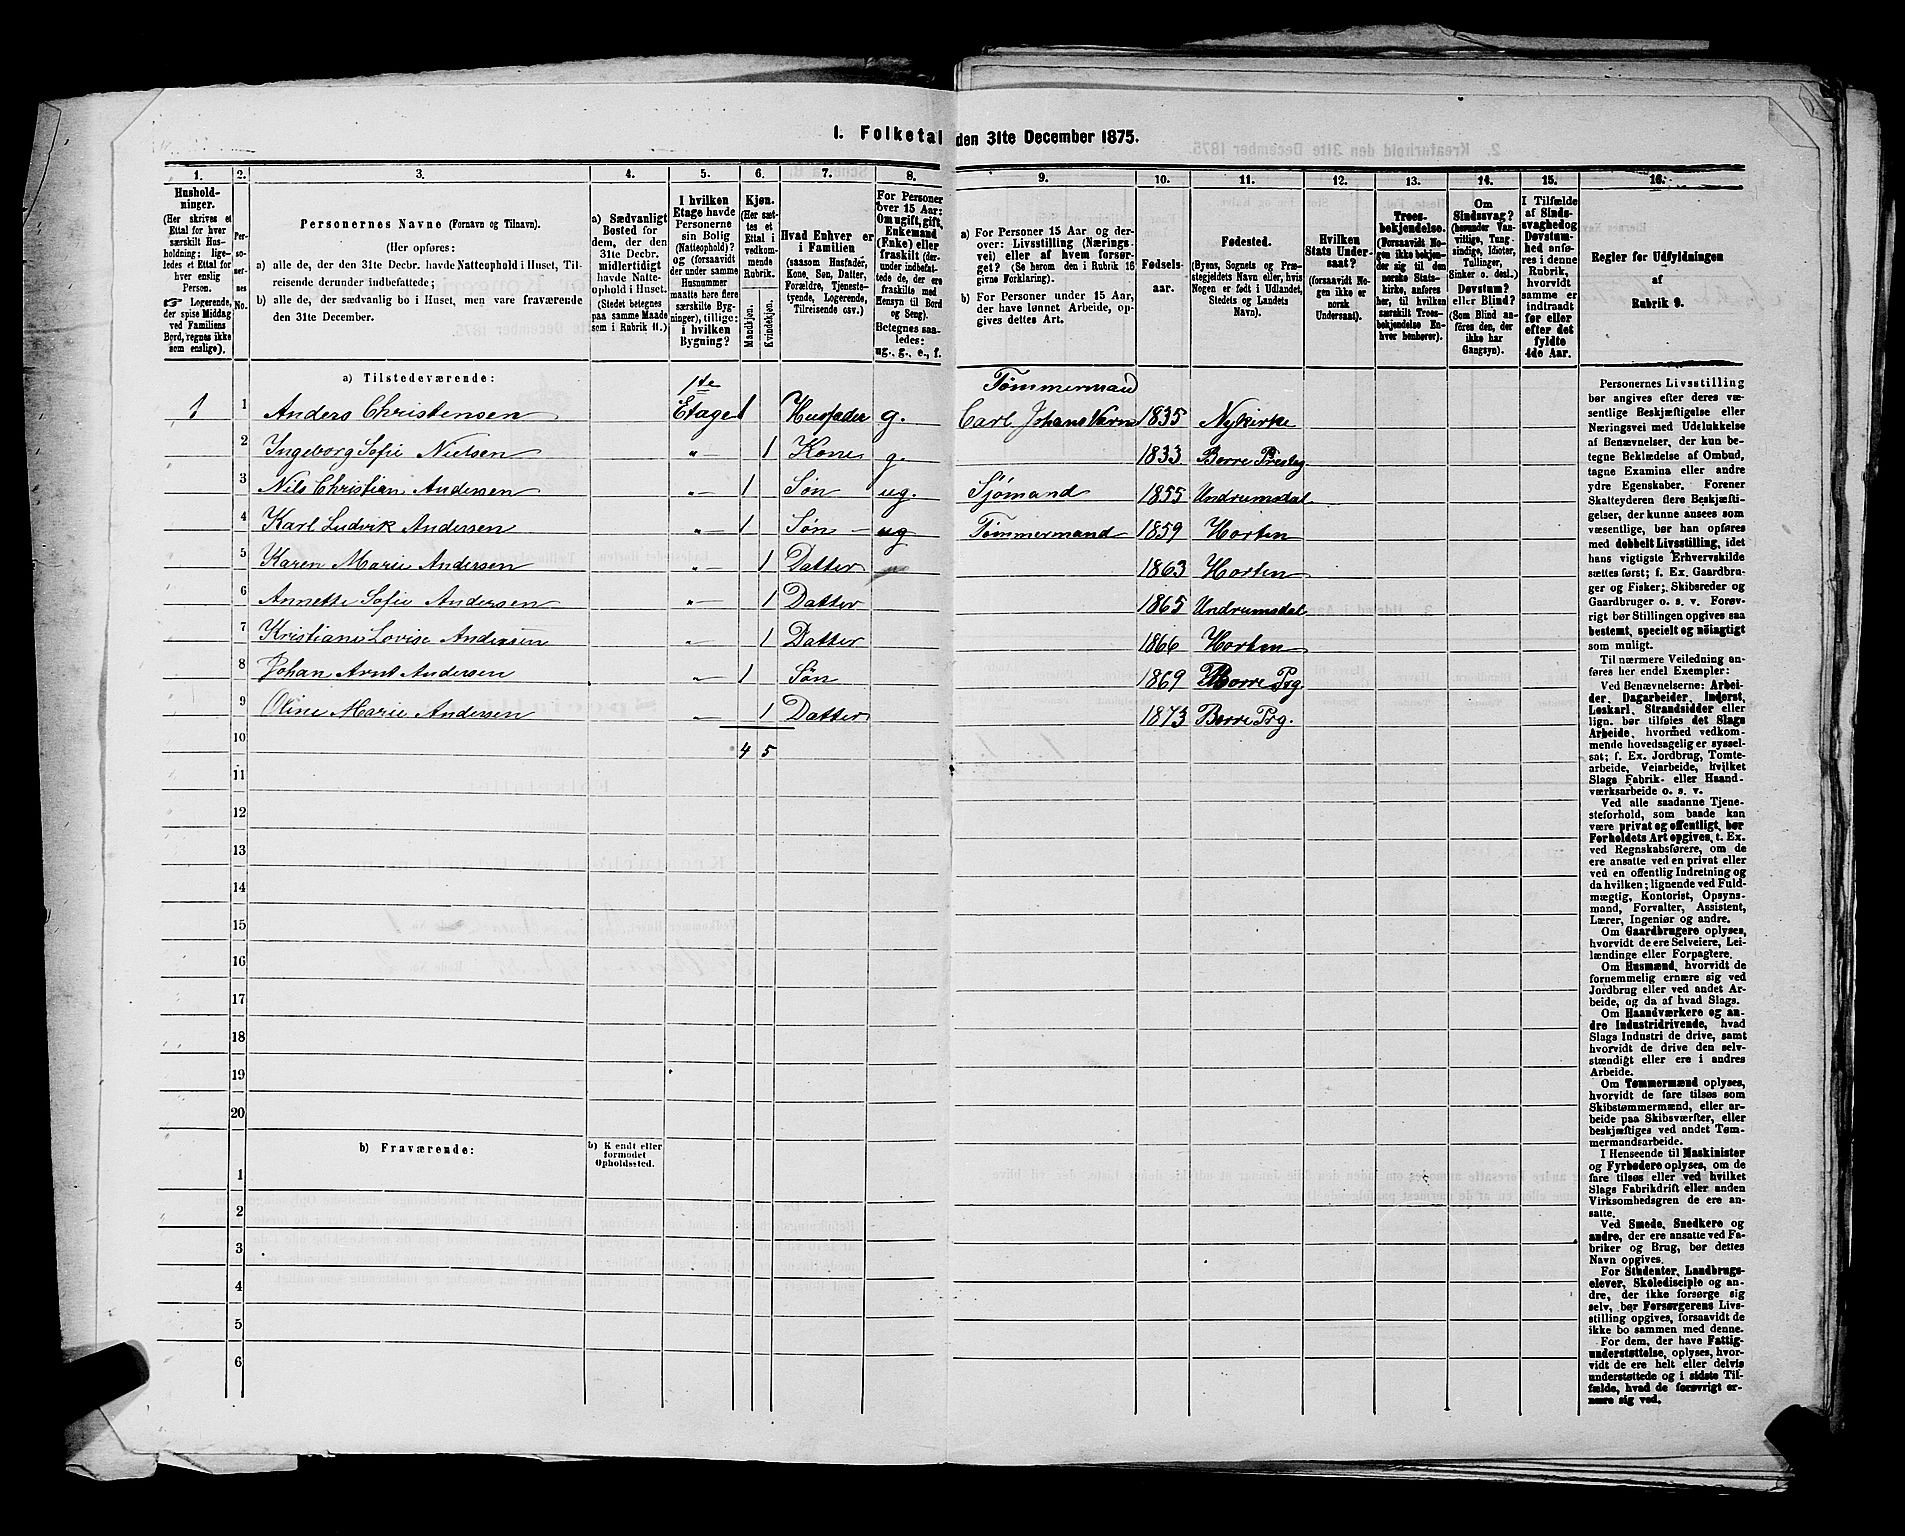 1. Folketal den 31te December 1875.
1. 2. 3. 4. 5. 6. 7. 8. 9. 10. 11. 12. 13. 14. 15. 16.
Hushold-
ninger.
(Her skrives et
Ettal for hver
særskilt Hus-
holdning; lige-
ledes et Ettal for
hver enslig
Person.
☞ Logerende,
der spise Middag
ved Familiens
Bord, regnes ikke
som enslige).
Per-
so-
ner-
nes
No.
Personernes Navne (Fornavn og Tilnavn).
(Her opføres:
a) alle de, der den 31te Decbr. havde Natteophold i Huset, Til-
reisende derunder indbefattede;
b) alle de, der sædvanlig bo i Huset, men vare fraværende
den 31te December.
a) Sædvanligt
Bosted for
dem, der den
31te Decbr.
midlertidigt
havde Natte-
ophold i Huset.
(Stedet betegnes
paa samme Maade
som i Rubrik 11.)
I hvilken
Etage havde
Personerne
sin Bolig
(Natteophold)?
og (forsaavidt
der under samme
Husnummer
maatte høre flere
særskilte Byg-
ninger), tillige:
i hvilken
Bygning?
Kjøn.
(Her sæt-
tes et
Ettal i
vedkom-
mende
Rubrik.
Mandkjøn.
Kvindekjøn.
Hvad Enhver er
i Familien
(saasom Husfader,
Kone, Søn, Datter,
Forældre, Tjeneste-
tyende, Logerende,
Tilreisende osv.)
For Personer
over 15 Aar:
Om ugift, gift,
Enkemand
(Enke) eller
fraskilt (der-
under indbefat-
tede de, der ere
fraskilte med
Hensyn til Bord
og Seng).
Betegnes saa-
ledes:
ug., g., e., f.
a) For Personer 15 Aar og der-
over: Livsstilling (Nærings-
vei) eller af hvem forsør-
get? (Se herom den i Rubrik 16
givne Forklaring).
b) For Personer under 15 Aar,
der have lønnet Arbeide, op-
gives dettes Art.
Fødsels-
aar.
Fødested.
(Byens, Sognets og Præ-
stegjeldets Navn eller, hvis
Nogen er født i Udlandet,
Stedets og Landets
Navn).
Hvilken
Stats Under-
saat?
(forsaavidt No-
gen ikke er
norsk
Undersaat).
Troes-
bekjendelse.
(Forsaavidt No-
gen ikke bekjen-
der sig til den
norske Stats-
kirke, anføres
her, til hvilken
særskilt Troes-
bekjendelse En-
hver henhører).
Om
Sindssvag?
(herunder Van-
vittige, Tung-
sindige, Idioter,
Tullinger,
Sinker o. desl.)
Døvstum?
eller Blind?
(Som Blind an-
føres den, der
ikke har
Gangsyn).
I Tilfælde
af Sinds-
svaghed og
Døvstum-
hed anfø-
res i denne
Rubrik,
hvorvidt
samme er
indtraadt
før eller
efter det
fyldte
4de Aar.
Regler for Udfyldningen
af
Rubrik 9.
a) Tilstedeværende: 1te Tømmermand
1 1 Anders Christensen Etage 1 Husfader g. Carl Johans Værn 1835 Nykirke
2 Ingeborg Sofie Nielsen „ — 1 Kone g. 1833 Borre Presteg
3 Nils Christian Andersen „ — 1 Søn ug. Sjömand 1855 Undrumsdal
4 Karl Ludvik Andersen „ — 1 Søn ug Tømmermand 1859 Horten
5 Karen Marie Andersen „ — 1 Datter 1863 Horten
6 Annette Sofie Andersen „ — 1 Datter 1865 Undrumsdal
7 Kristiane Lovise Andersen „ — 1 Datter 1866 Horten
8 Johan Arnt Andersen „ — 1 Søn 1869 Borre Prg.
9 Oline Marie Andersen „ — 1 Datter 1873 Borre Prg.
10 4 5
11
12
13
14
15
16
17
18
19
20
b) Fraværende: b) Kjendt eller
formodet
Opholdssted.
1
2
3
4
5
6
Personernes Livsstilling
bør angives efter deres væ-
sentlige Beskjæftigelse eller
Næringsvei med Udelukkelse
af Benævnelser, der kun be-
tegne Beklædelse af Ombud,
tagne Examina eller andre
ydre Egenskaber. Forener
Skatteyderen flere Beskjæfti-
gelser, der kunne ansees som
væsentlige, bør han opføres
med dobbelt Livsstilling, idet
hans vigtigste Erhvervskilde
sættes først; f. Ex. Gaardbru-
ger og Fisker; Skibsreder og
Gaardbruger o. s. v. Forøv-
rigt bør Stillingen opgives saa
bestemt, specielt og nöiagtigt
som muligt.
Til nærmere Veiledning an-
føres her endel Exempler:
Ved Benævnelserne: Arbei-
der, Dagarbeider, Inderst,
Løskarl, Strandsidder eller
lign. bør tilføies det Slags
Arbeide, hvormed vedkom-
mende hovedsagelig er syssel-
sat; f. Ex. Jordbrug, Tomte-
arbeide, Veiarbeide, hvilket
Slags Fabrik- eller Haand-
værksarbeide o. s. v.
Ved alle saadanne Tjene-
steforhold, som baade kan
være privat og offentligt, bør
Forholdets Art opgives, t. Ex.
ved Regnskabsførere, om de
ere ansatte ved en privat eller
ved en offentlig Indretning og
da hvilken; lignende ved Fuld-
mægtig, Kontorist, Opsyns-
mand, Forvalter, Assistent,
Lærer, Ingeniør og andre.
Om Gaardbrugere oplyses,
hvorvidt de ere Selveiere, Lei-
lændinge eller Forpagtere.
Om Husmænd, hvorvidt de
fornemmelig ernære sig ved
Jordbrug eller ved andet Ar-
beide, og da af hvad Slags.
Om Haandværkere og an-
dre Industridrivende, hvad
Slags Industri de drive, samt
hvorvidt de drive den selv-
stændigt eller ere i andres
Arbeide.
Om Tømmermænd oplyses,
hvorvidt de fare tilsøs som
Skibstømmermænd, eller ar-
beide paa Skibsværfter, eller
beskjæftiges ved andet Tøm-
mermandsarbeide.
I Henseende til Maskinister
og Fyrbødere oplyses, om de
fare tilsøs eller ved hvilket
Slags Fabrikdrift eller anden
Virksomhedsgren de ere an-
satte.
Ved Smede, Snedkere og
andre, der ere ansatte ved Fa-
briker og Brug, bør dettes
Navn opgives.
For Studenter, Landbrugs-
elever, Skoledisciple og an-
dre, der ikke forsørge sig
selv, bør Forsørgerens Livs-
stilling opgives, forsaavidt de
ikke bo sammen med denne.
For dem, der have Fattig-
understøttelse, oplyses, hvor-
vidt de ere helt eller delvis
understøttede og i sidste Til-
fælde, hvad de forøvrigt er-
nære sig ved.